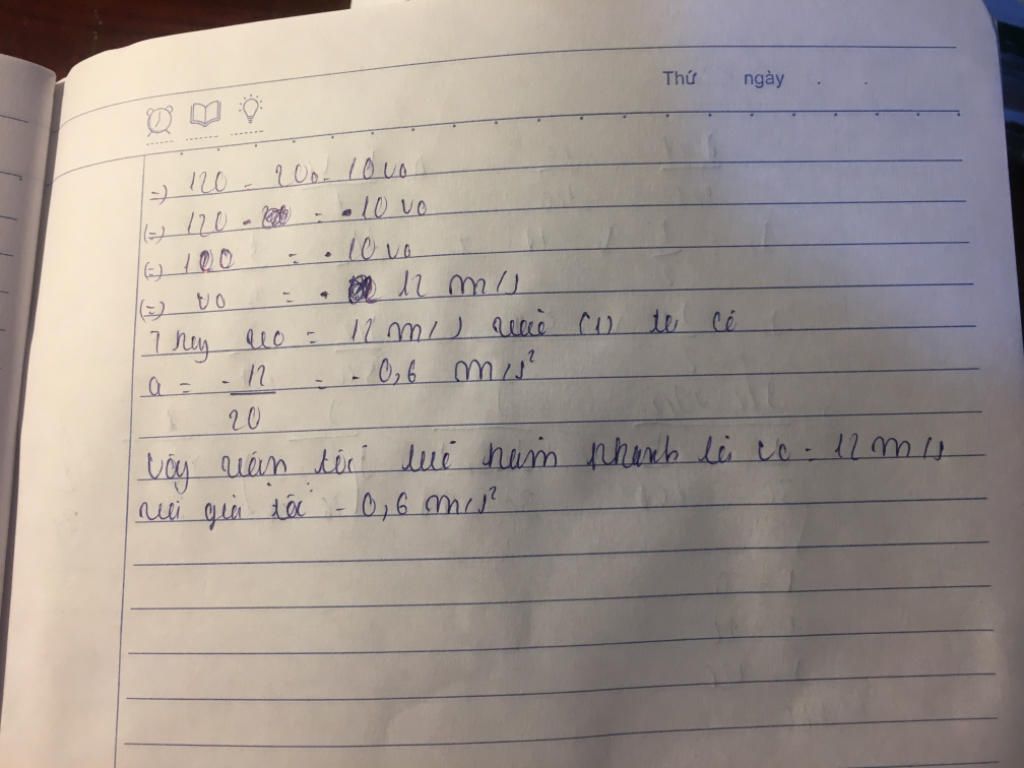 Thứ ngày . .
=) 120 = 20v0 - 10v0
(=) 120 = 10 v0
(=) 120 = 10 v0
(=) v0 = 12 m/s
Thay v0 = 12 m/s vào (1) ta có
a = -12/20 = - 0,6 m/s²
Vậy vận tốc lúc hãm phanh là v0 = 12 m/s
và gia tốc - 0,6 m/s²